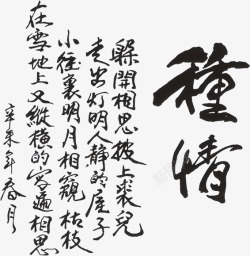 種情
躲開相思披上裘兒
走出灯明人静的屋子
小徑裏明月相窺枯枝
在雪地上又縱橫的写遍相思
辛未年春月